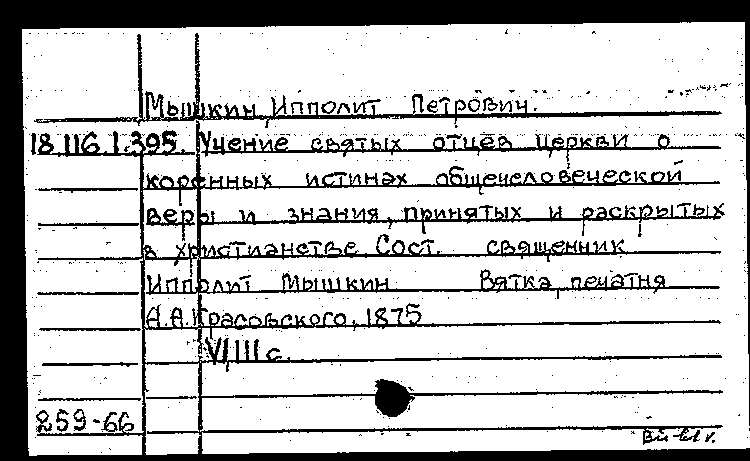 Мышкин, Ипполит Петрович.
18.116.1.395. Учение святых отцев церкви о
коренных истинах общечеловеческой
веры и знания, принятых и раскрытых
в христианстве. Сост. священник
Ипполит Мышкин. Вятка, печатня
А.А.Красовского, 1875
VI, 111 с.
259-66